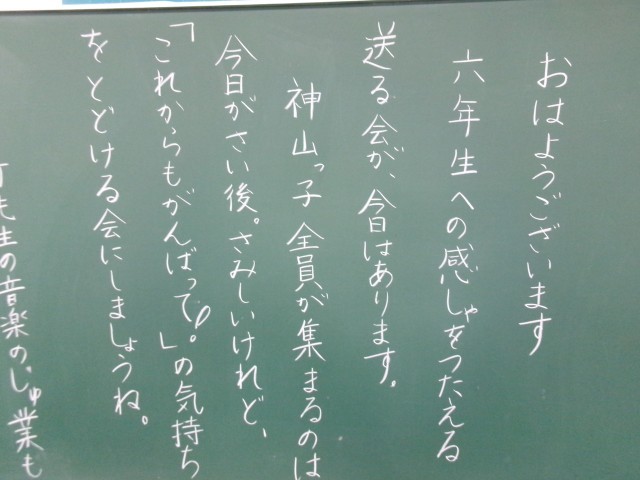 おはようございます
六年生への感しゃをつたえる
送る会が、今日はあります。
神山っ子全員が集まるのは
今日がさい後。さみしいけれど、
「これからもがんばって!。」の気持ち
をとどける会にしましょうね。
先生の音楽のじゅ業も